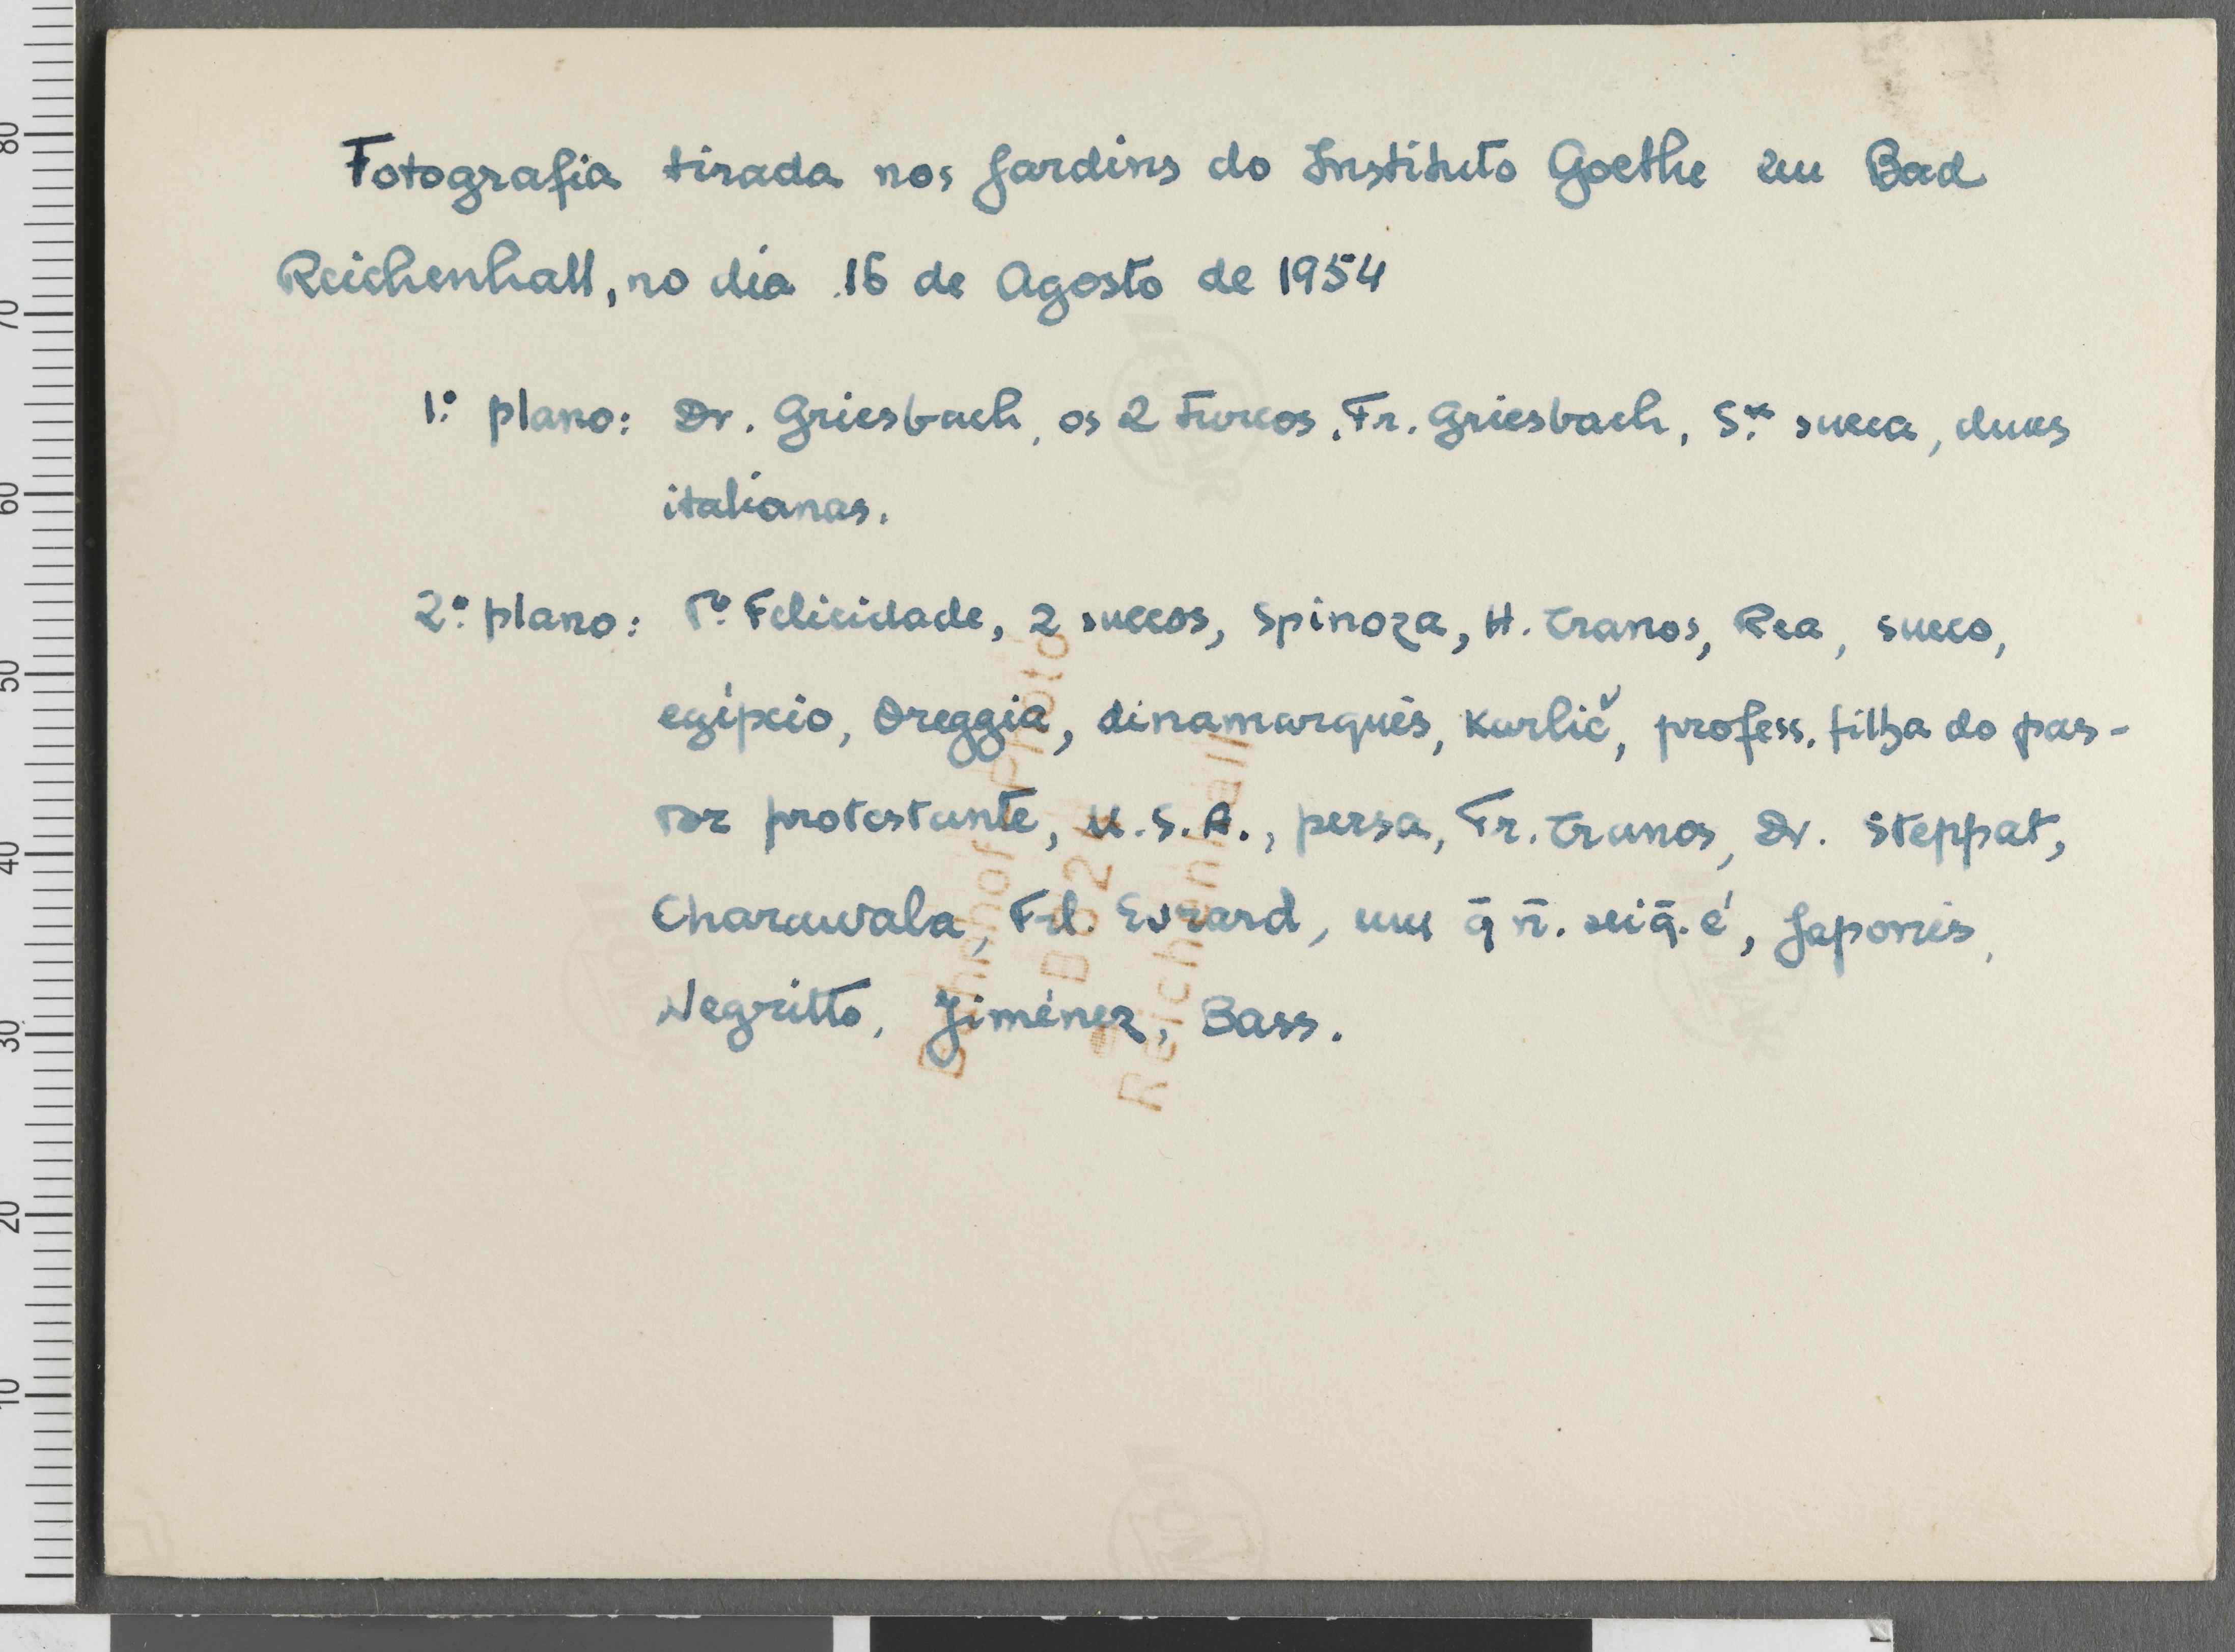 Fotografia tirada nos Jardins do Instituto Goethe em Bad
Reichenhall, no dia 16 de Agosto de 1954
1.º plano: Dr. Griesbach, os 2 turcos, Fr. Griesbach, S.ra sueca, duas
italianas.
2.º plano: Felicidade, 2 suecos, Spinoza, H. Tranos, Rea, sueco,
egípcio, Oreggia, dinamarquês, Kurlič, profess. filha do pas-
tor protestante, U.S.A., persa, Fr. Tranos, Dr. Steppat,
Charawala, Frl. Evrard, um q̄ ñ. sei q̄. é, Japonês,
Negritto, Jiménez, Bass.
Bahnhof Photo
Reichenhall
80
70
60
50
40
30
20
10